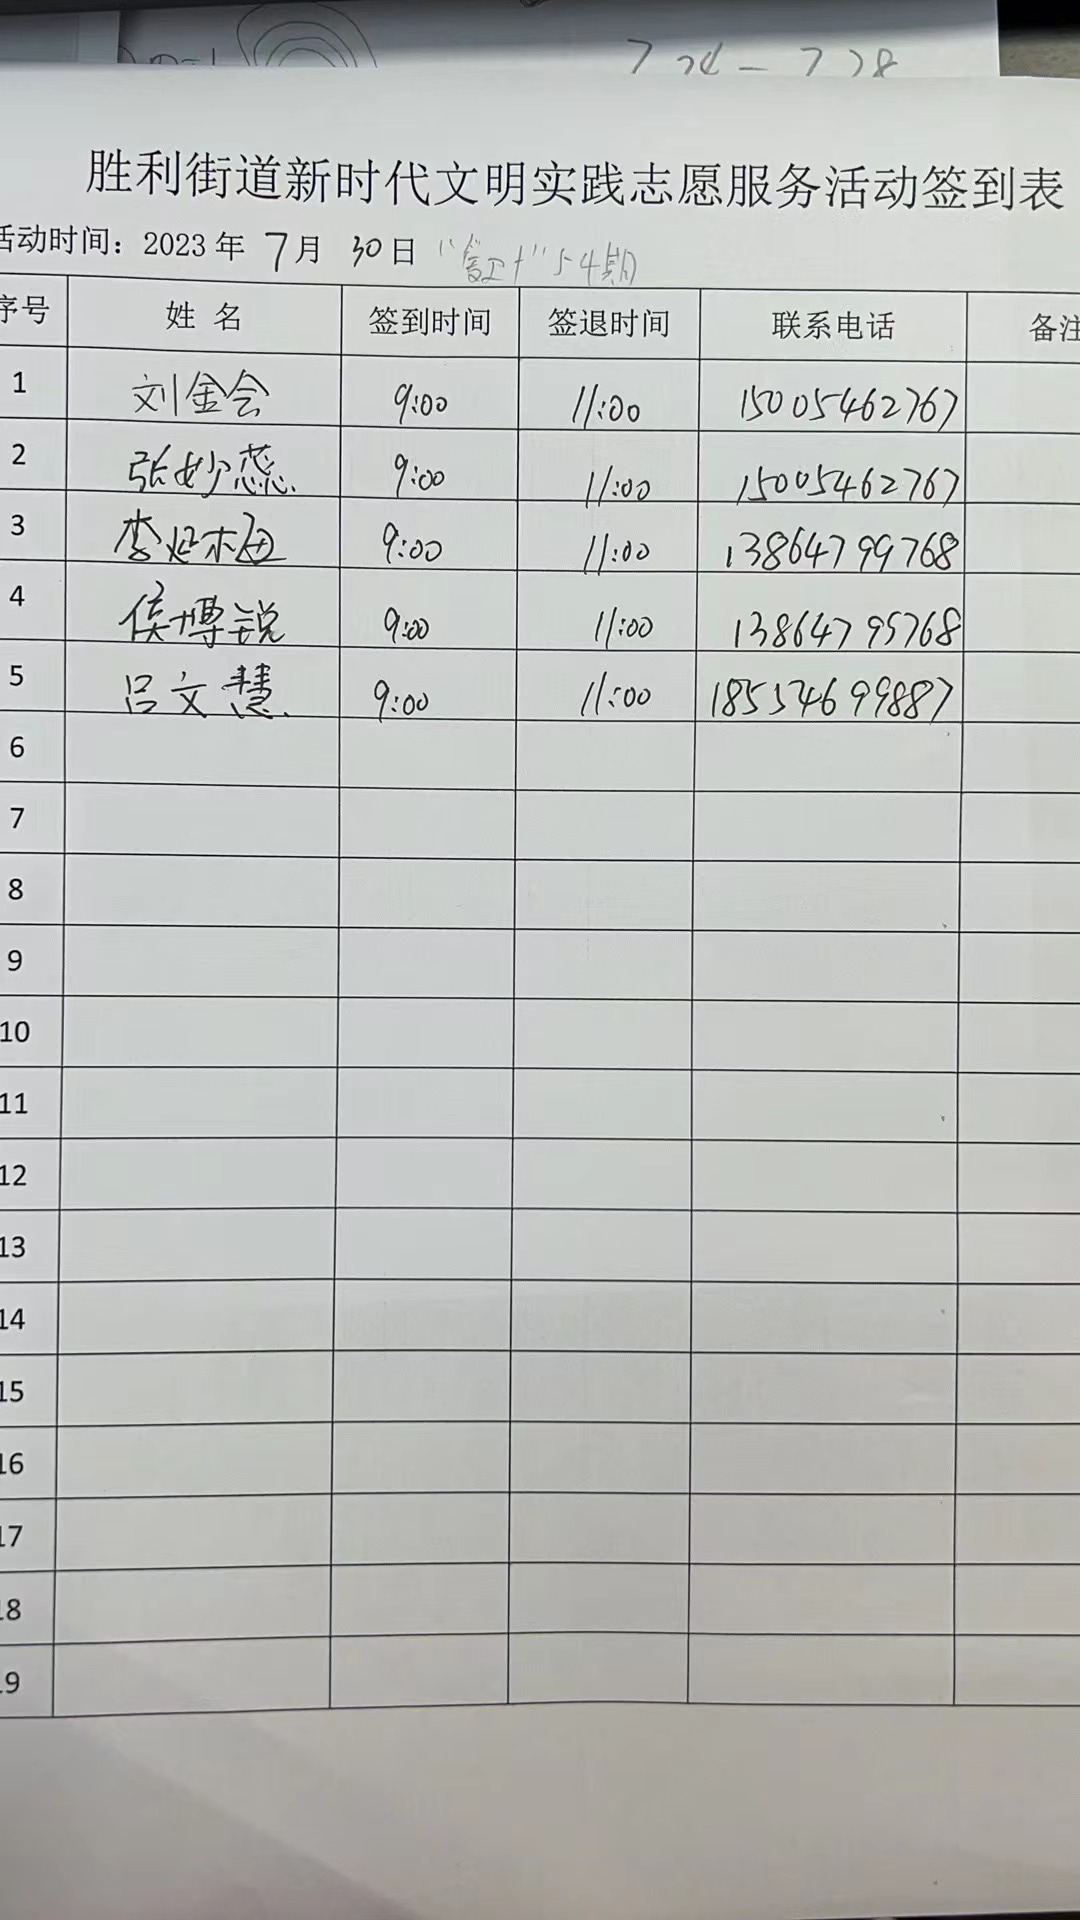 7 24 - 7 28
胜利街道新时代文明实践志愿服务活动签到表
活动时间：2023年 7月 30日 54期
序号 姓 名 签到时间 签退时间 联系电话 备注
1 刘金会 9:00 11:00 15005462767
2 张妙蕊 9:00 11:00 15005462767
3 李 9:00 11:00 13864799768
4 侯博锐 9:00 11:00 13864795768
5 吕文慧 9:00 11:00 18554699887
6
7
8
9
10
11
12
13
14
15
16
17
18
19